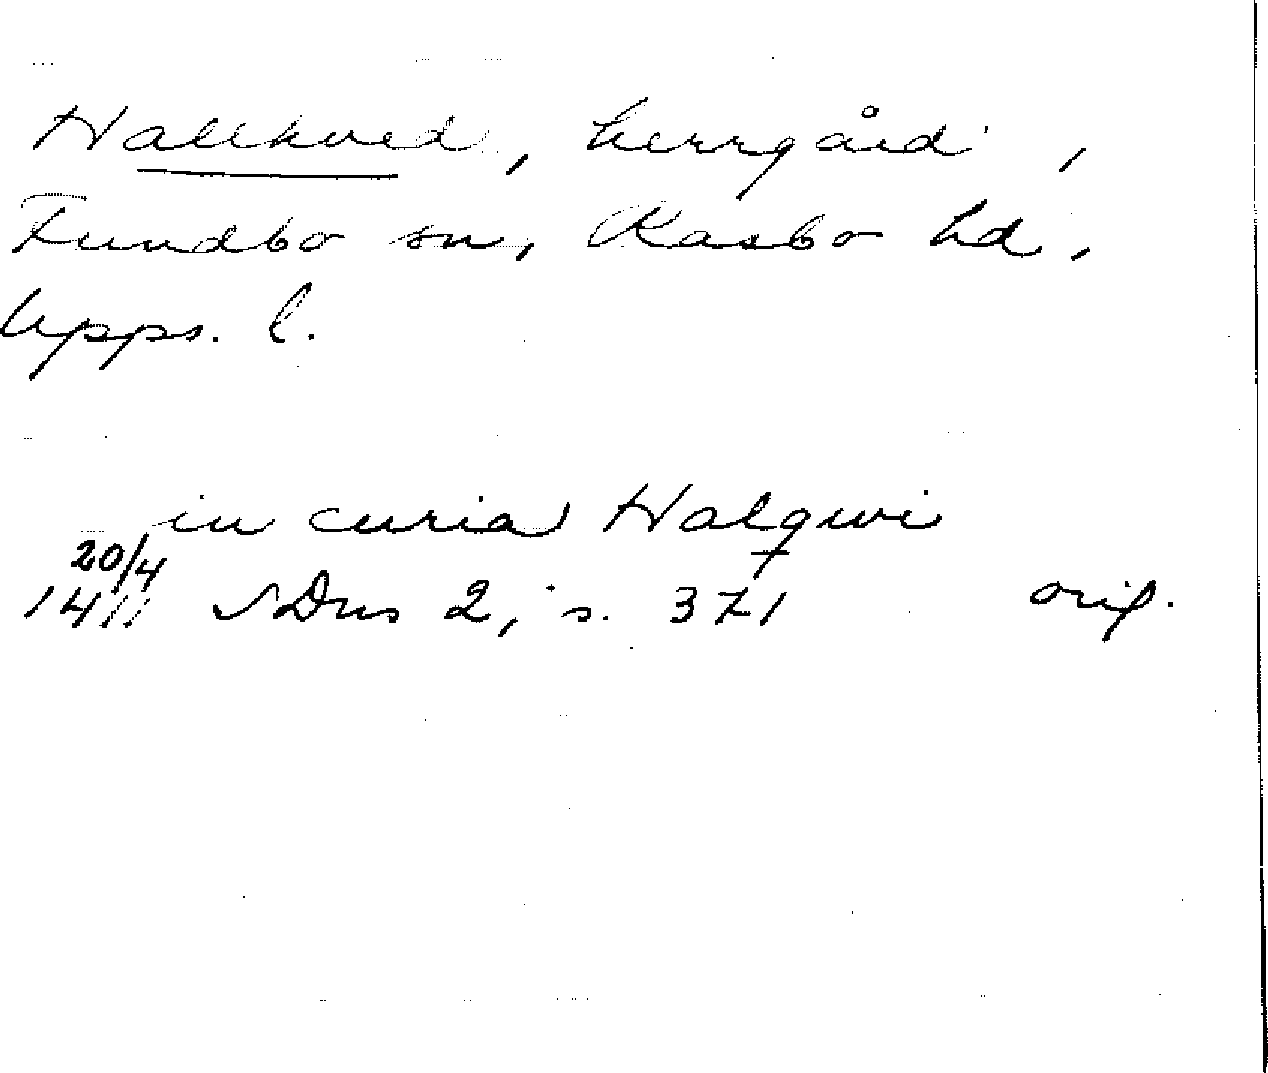 Hallkved, herrgård,
Funbo sn, Rasbo hd,
Upps. l.
in curia Halqwi
20/4
1411 SDns 2, s. 371 orig.